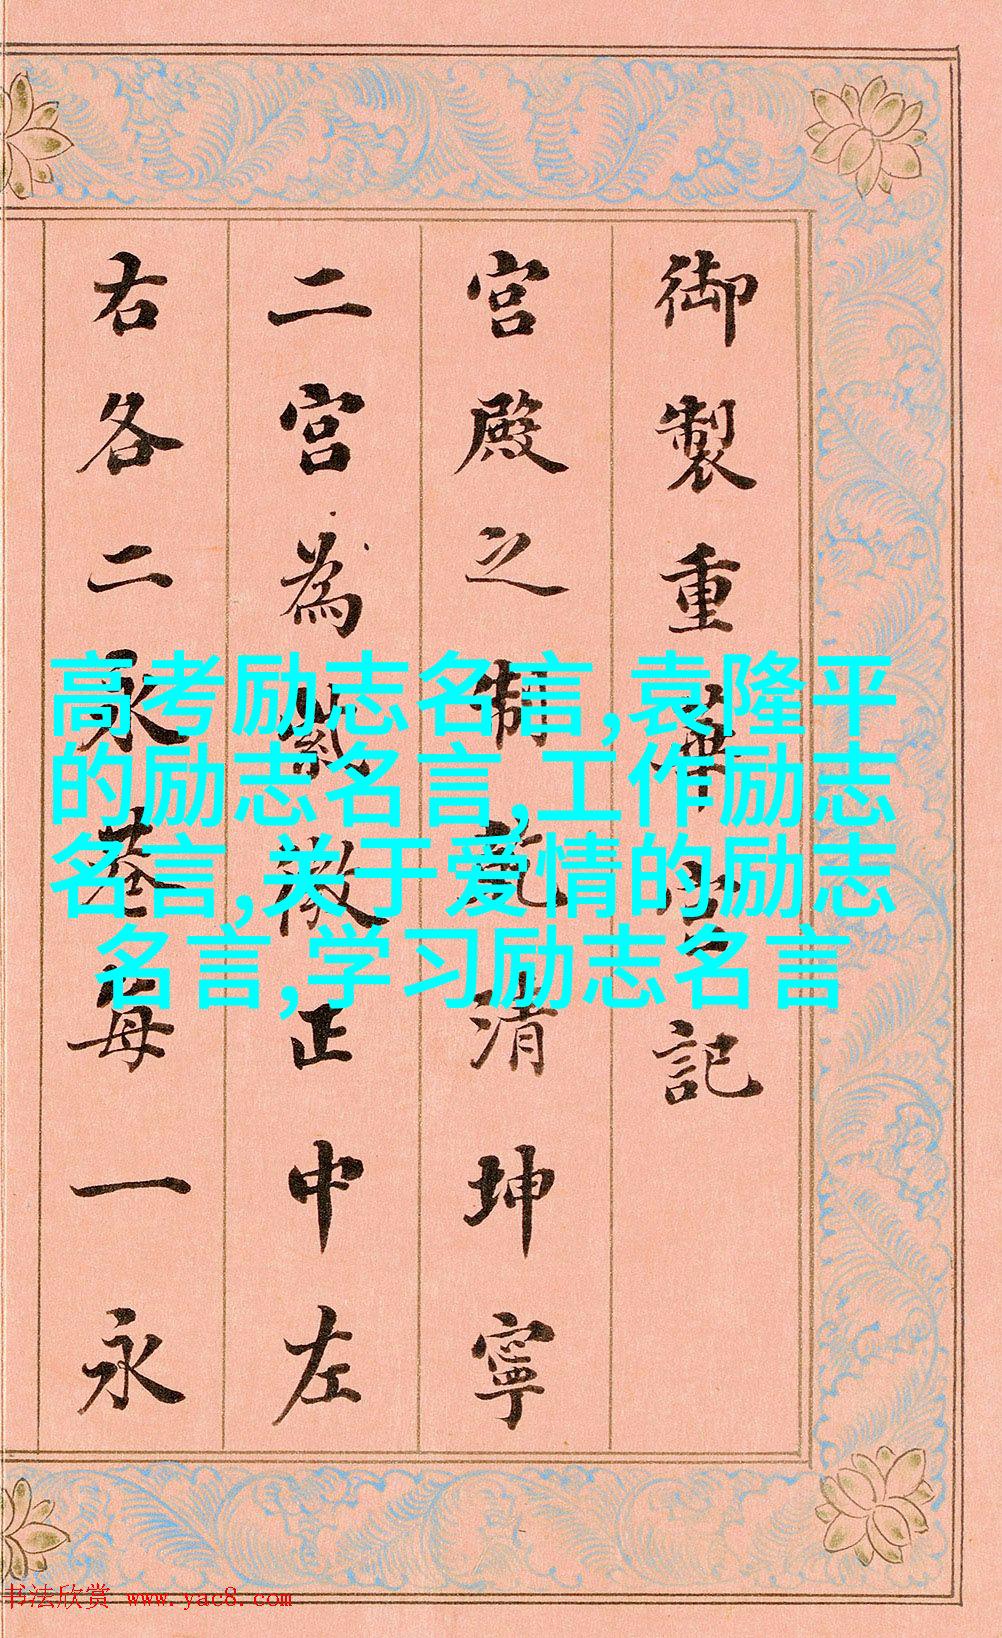 御製重華宮記
宮殿之制乾清坤寧
二宮為紫微正中左
右各二永巷每一永
高考励志名言,袁隆平
的励志名言,工作励志
名言,关于爱情的励志
名言,学习励志名言
书法欣赏 www.yac8.com